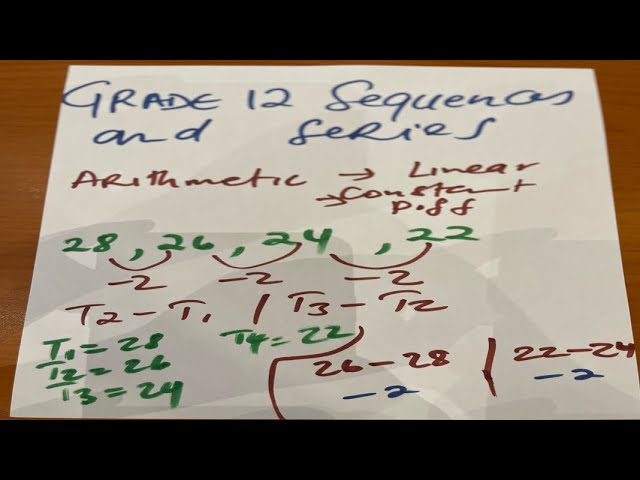 GRADE 12 Sequences
and series
Arithmetic → Linear
→ Constant
Diff
28, 26, 24, 22
-2 -2 -2
T2 - T1 / T3 - T2
T1 = 28
T2 = 26
T3 = 24
T4 = 22
26 - 28 | 22 - 24
-2 -2